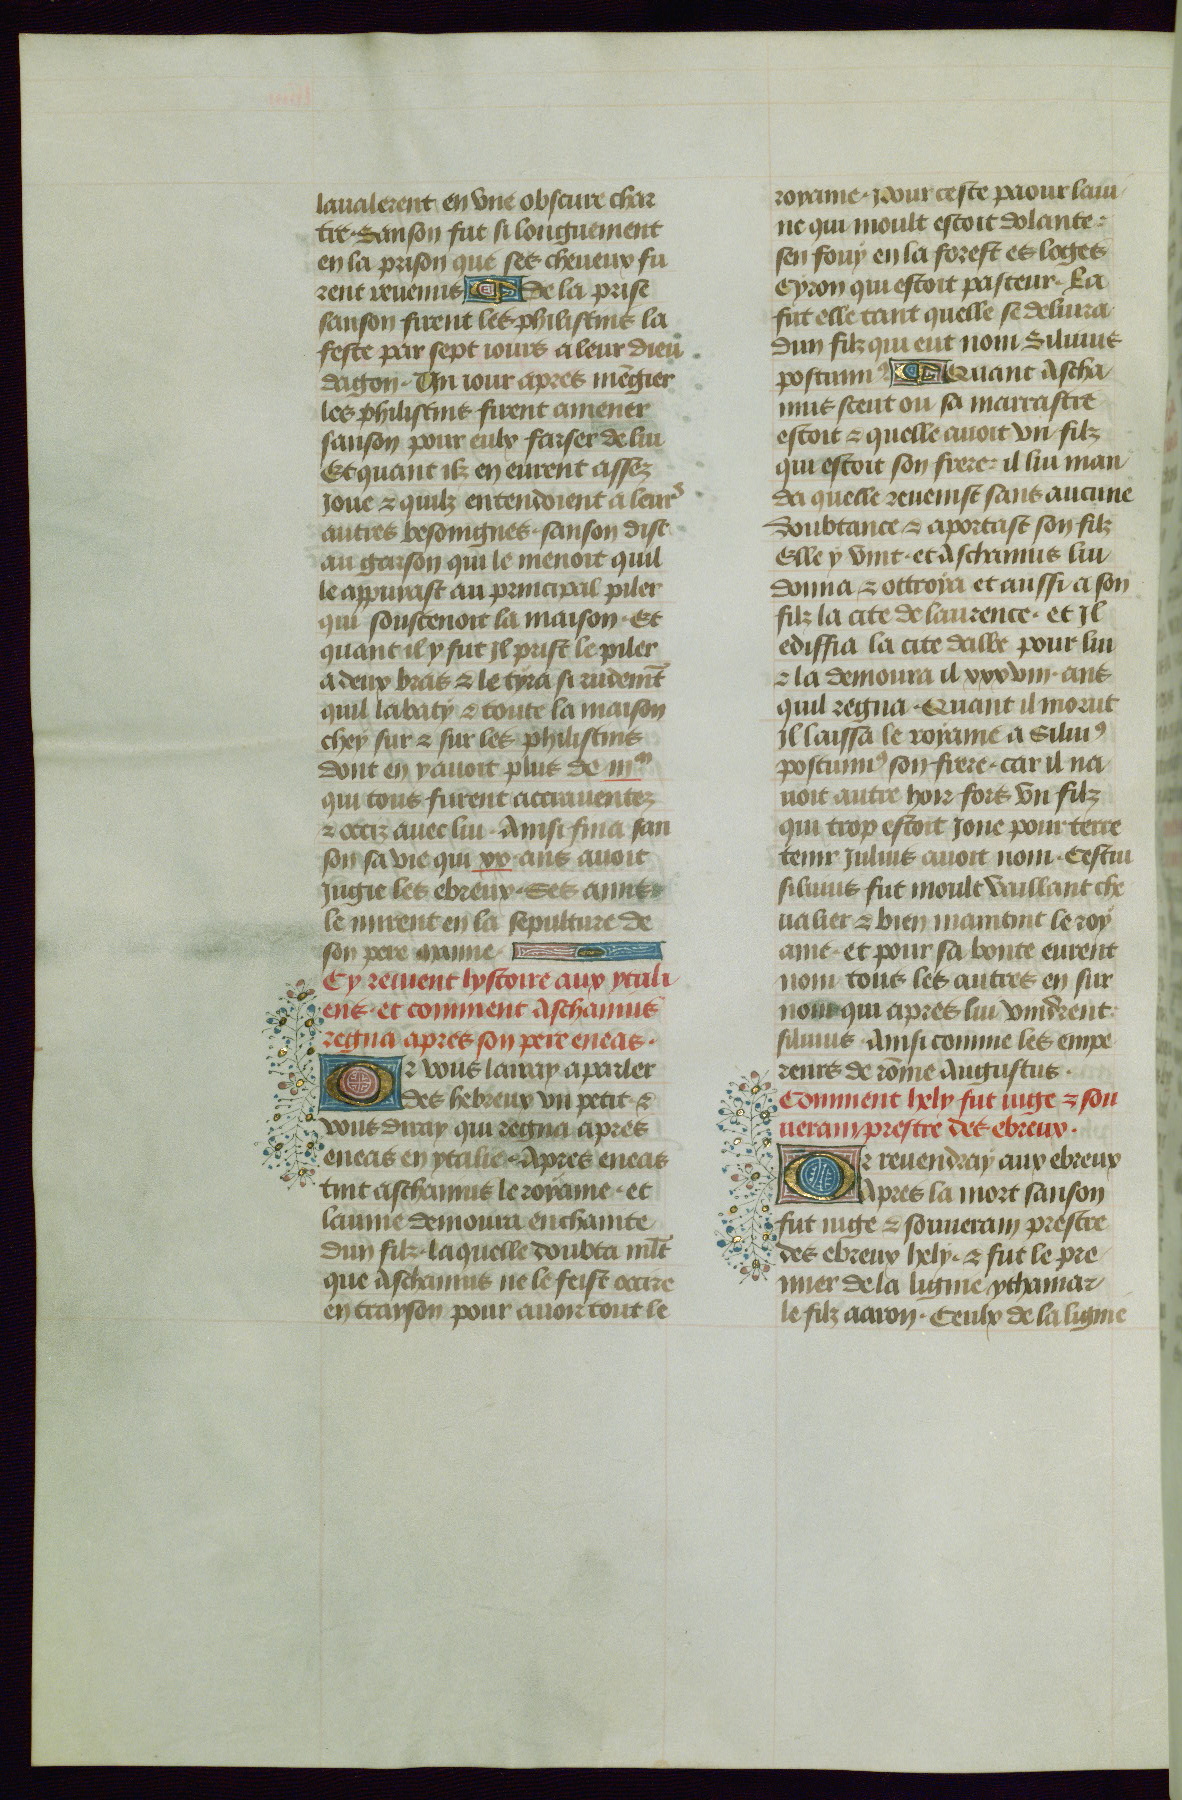 laualerent en vne obscure char
tre. Sanson fut si longuement
en la prison que ses cheueux fu
rent reuenus De la prise
sanson firent les philistins la
feste par sept iours a leur dieu
dagon. Un iour apres mēgier
les philistins firent amener
sanson pour eulx farser de lui
Et quant ilz en eurent assez
Joue & quilz entendoient a leurs
autres besoingnes. sanson dist
au garson qui le menoit quil
le appuyast au principal piler
qui soustenoit la maison. Et
quant il y fut Jl prist le piler
a deux bras & le tyra si rudemt̄
quil labaty & toute la maison
chey sur & sur les philistins
dont en y auoit plus de iiiᵐ
qui tous furent acrauentez
& occiz auec lui. Ainsi fina san
son sa vie qui xx. ans auoit
Jugie les ebreux. Ses amis
le mirent en la sepulture de
son pere manue.
Cy reuient lystoire aux ytali
ens. et comment Aschanius
regna apres son pere eneas.
Or vous lairay a parler
des hebreux vn petit &
vous diray qui regna apres
eneas en ytalie. Apres eneas
tint aschanius le royame. et
lauine demoura enchainte
dun filz. laquelle doubta mlt̄
que Aschanius ne le feist occire
en trayson pour auoir tout le
royame. Pour ceste paour laui
ne qui moult estoit dolante.
sen fouy en la forest es loges
Cyron qui estoit pasteur. La
fut elle tant quelle se deliura
dun filz qui eut nom Siluius
postumꝰ Quant Ascha
nius sceut ou sa marrastre
estoit & quelle auoit vn filz
qui estoit son frere. il lui man
da quelle reuenist sans aucune
doubtance & aportast son filz
Elle y vint. et Aschanius lui
donna & ottroya et aussi a son
filz la cite de laurence. et Jl
ediffia la cite dalbe pour lui
& la demoura il xxxviii. ans
quil regna. Quant il morut
Jl laissa le royame a Siluiꝰ
postumꝰ son frere. car il na
uoit autre hoir fors vn filz
qui trop estoit Jone pour terre
tenir Julius auoit nom. Cestui
siluius fut moult vaillant che
ualier & bien maintint le roy
ame. et pour sa bonte eurent
nom tous les autres en sur
nom qui apres lui vindrent.
siluius. Ainsi comme les empe
reurs de rōme Augustus.
Comment hely fut iuge & sou
uerain prestre des ebreux.
Or reuendray aux ebreux
Apres la mort sanson
fut iuge & souuerain prestre
des ebreux hely. & fut le pre
mier de la lignie ythamar
le filz aaron. Ceulx de la lignie